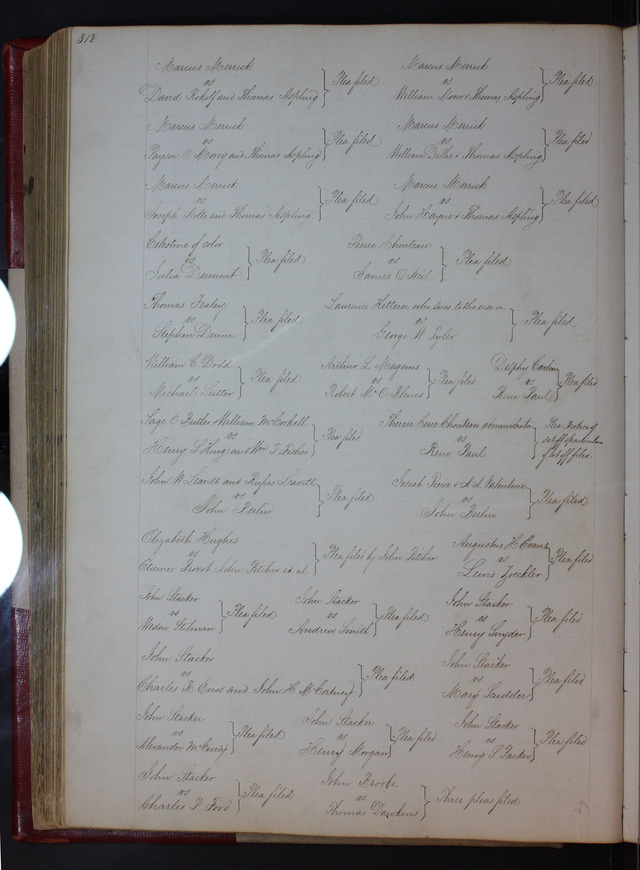 312
Marcus Merrick
vs
David and Thomas Aspling } Plea filed
Marcus Merrick
vs
William Moore & Thomas Aspling } Plea filed
Marcus Merrick
vs
Payson O Money and Thomas Aspling } Plea filed
Marcus Merrick
vs
William Diller & Thomas Aspling } Plea filed
Marcus Merrick
vs
Joseph Nolte and Thomas Aspling } Plea filed
Marcus Merrick
vs
John Hayne & Thomas Aspling } Plea filed
Celestine of color
vs
Julia Dumont } Plea filed
Pierre Chouteau
vs
James O Cecil } Plea filed
Thomas Fealey
vs
Stephen Dunn } Plea filed
Laurence Ketterer who sues to the use
vs
George W Tyler } Plea filed
William C Dodd
vs
Michael Sutter } Plea filed
Arthur L Magenis
vs
Robert } Plea filed
Delphy
vs
Rene Paul } Plea filed
Sage O Butler William McCorkell
vs
Henry S King and Wm P Fisher } Plea filed
Therese Cerre Chouteau administrator
vs
Rene Paul } Plea, Notice of
set off & particulars
of set off filed.
John W Leavitt and Rufus Leavitt
vs
John Perlin } Plea filed
Josiah & A A Valentine
vs
John Perlin } Plea filed
Elizabeth Hughes
vs
John Pilcher et al } Plea filed by John Pilcher
Augustus H Evans
vs
Lewis Zoeckler } Plea filed
John Stacker
vs
Stilman } Plea filed
John Stacker
vs
Andrew Smith } Plea filed
John Stacker
vs
Henry Snyder } Plea filed
John Stacker
vs
Charles R and John H McCortney } Plea filed
John Stacker
vs
Mary Scudder } Plea filed
John Stacker
vs
Alexander McCurdy } Plea filed
John Stacker
vs
Henry Morgan } Plea filed
John Stacker
vs
Henry S Packer } Plea filed
John Stacker
vs
Charles P Ford } Plea filed
John
vs
Thomas Dawkins } Three pleas filed